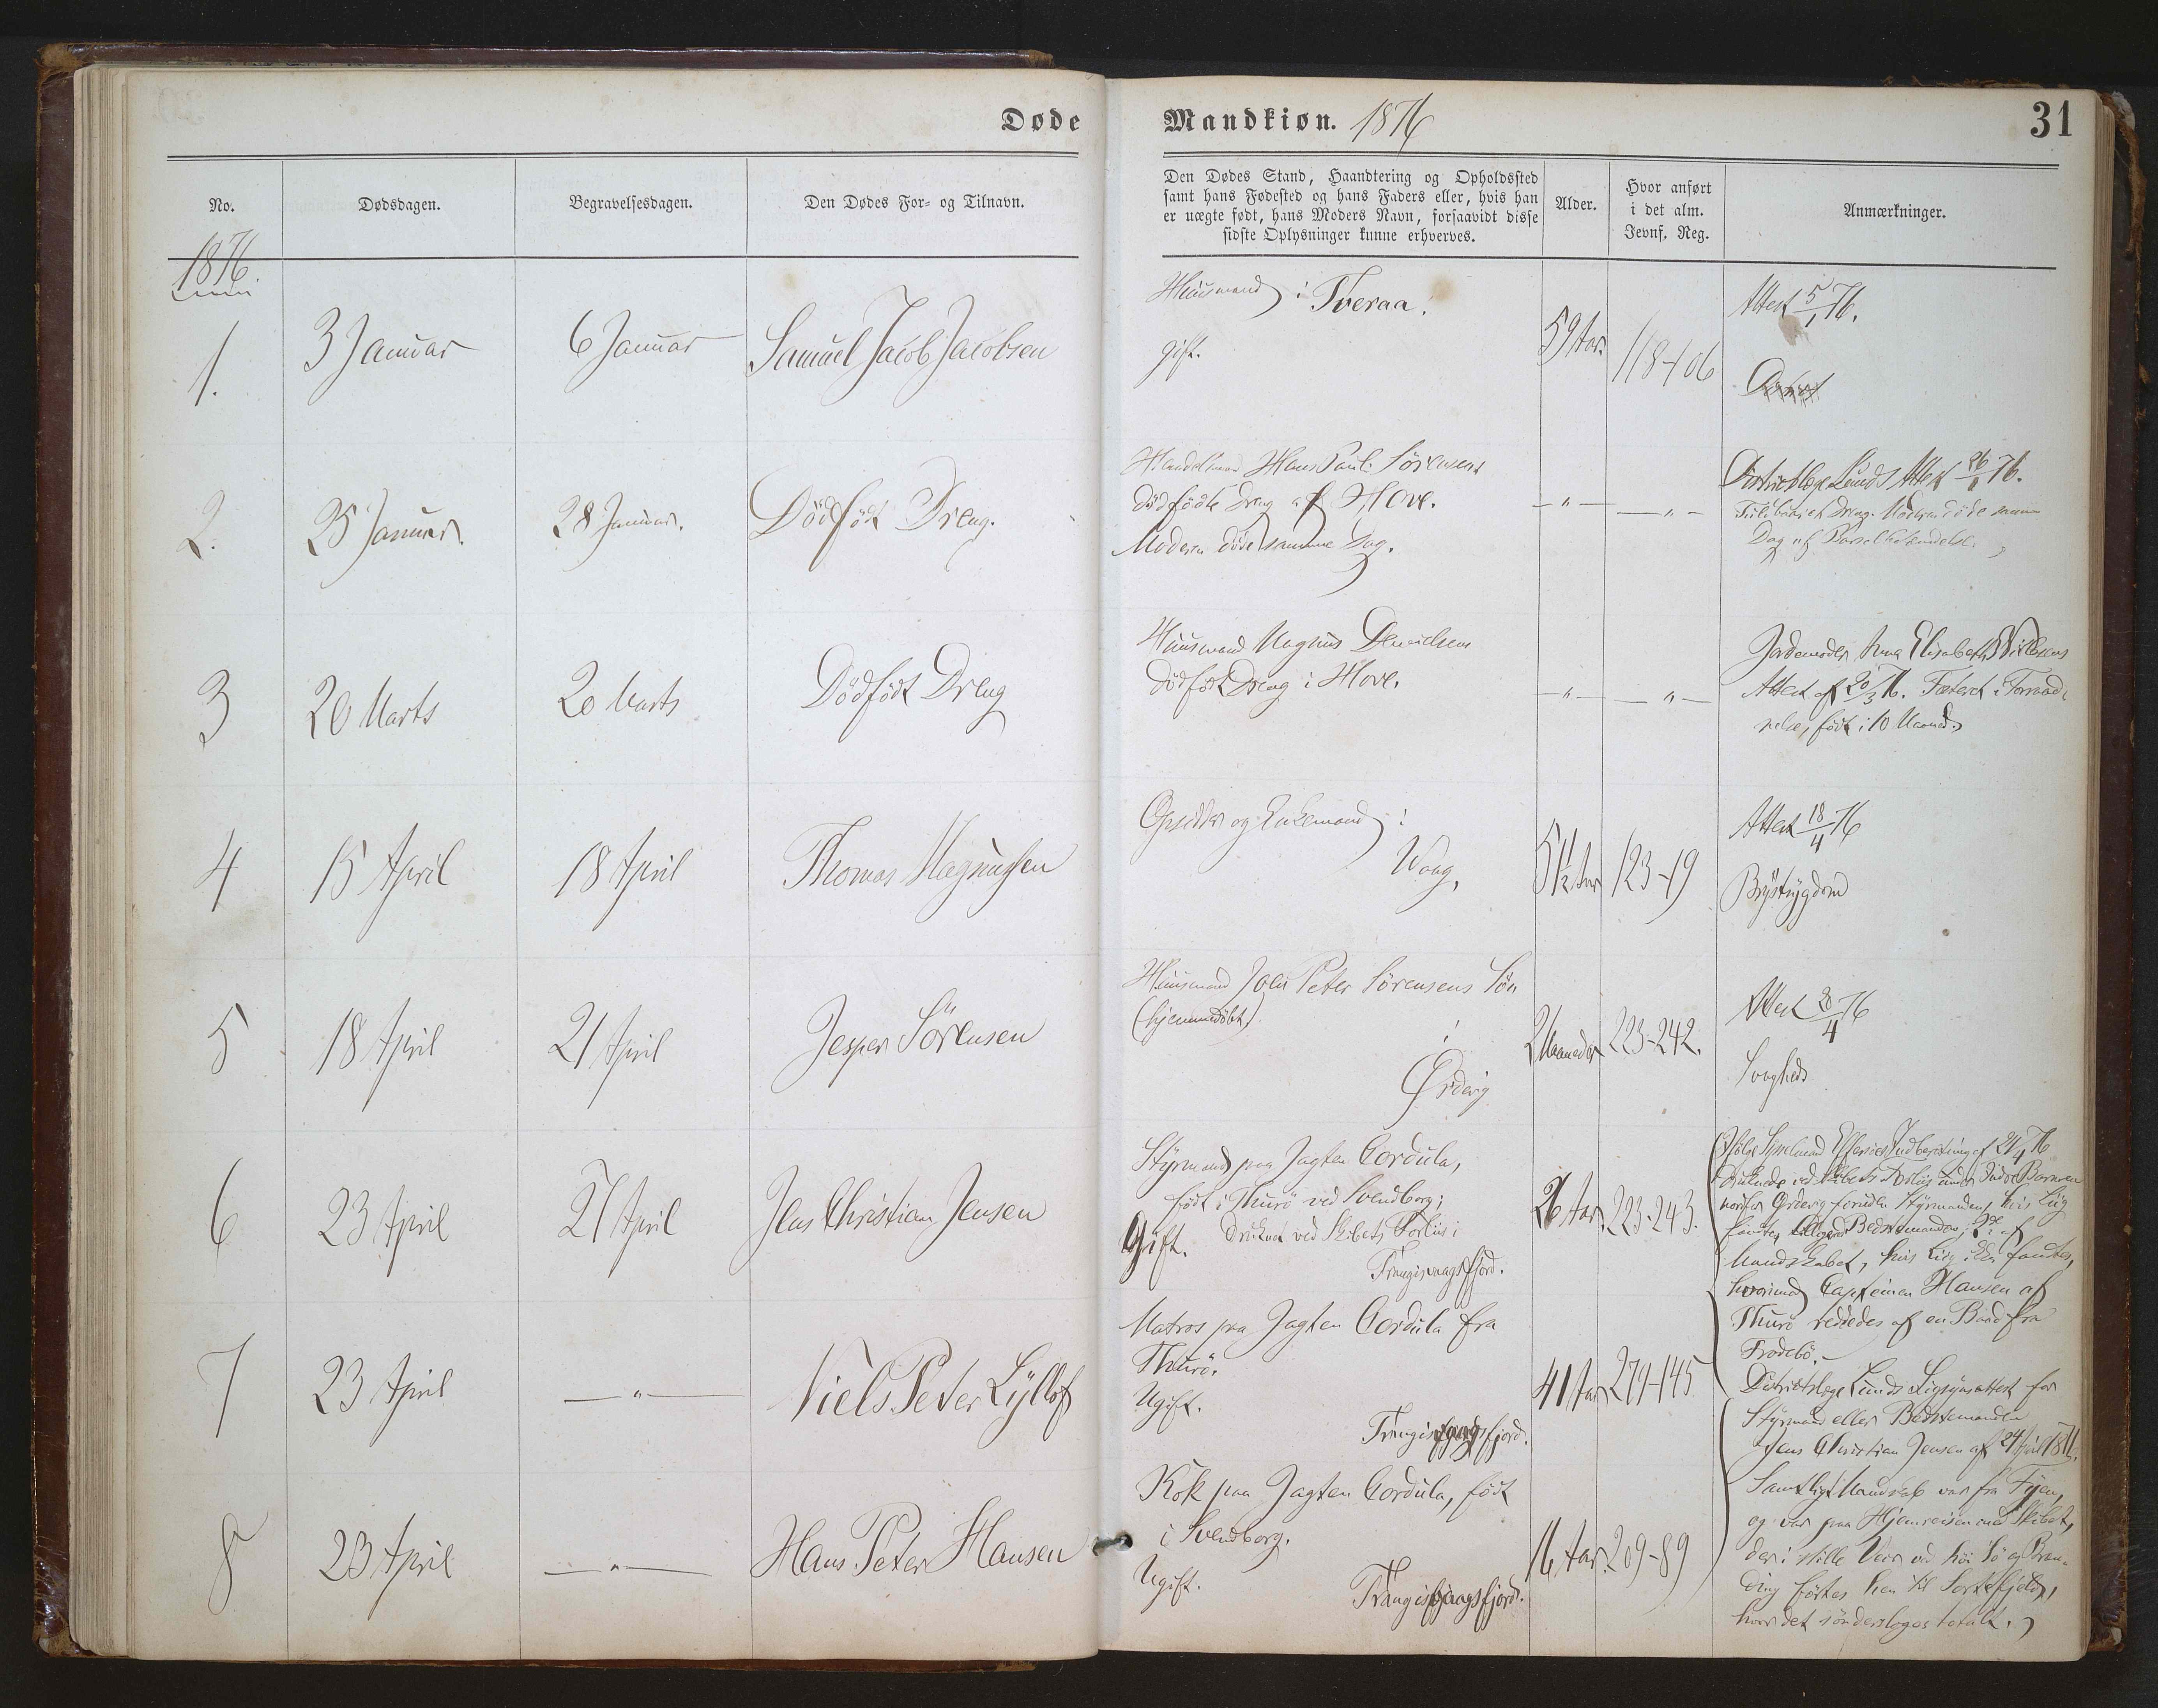 Døde
Mandkiøn. 1876
31
No.
Dødsdagen.
Begravelsesdagen.
Den Dødes For- og Tilnavn.
Den Dødes Stand, Haandtering og Opholdssted
samt hans Fødested og hans Faders eller, hvis han
er uægte født, hans Moders Navn, forsaavidt disse
sidste Oplysninger kunne erhverves.
Alder.
Hvor anført
i det alm.
Jevnf. Reg.
Anmærkninger.
1876.
1.
3 Januar
6 Januar
Samuel Jacob Jacobsen
Huusmand i Tveraa.
gift.
59 Aar.
118-106
Attest 5/1 76.
2.
25 Januar.
28 Januar.
Dödfödt Dreng.
Handelsmand Hans Pauli Sörensens
dödfödte Dreng af Hove.
Moderen döde samme Dag.
— " —
— " —
Districtslæge Lunds Attest 26/1 76.
Dreng. Moderen döde samme
Dag af
3
20 Marts
20 Marts
Dödfödt Dreng
Huusmand Magnus Danielsens
dödfödt Dreng i Hove.
— " —
— " —
Jordemoder Anna Elisabeth
Attest af 20/3 76. Fosteret i Forraad-
nelse, födt i 10 Maaned.
4
15 April
18 April
Thomas Magnussen
Opsidder og Enkemand i
Waag.
51 1/2 Aar
123-19
Attest 18/4 76
Brystsygdom
5
18 April
21 April
Jesper Sörensen
Huusmand Joen Peter Sörensens Sön
(hjemmedöbt)
i
Ørdevig
2 Maaneder
223-242.
Attest 20/4 76
Svaghed
6
23 April
27 April
Jens Christian Jensen
Styrmand paa Jagten Cordula,
födt i Thurö ved Svendborg;
Gift. Druknet ved Skibets Forliis i
Trangisvaagsfjord.
26 Aar.
223-243.
Ifölge Sysselmand Effersöes Indberetning af 24/4 76
druknede ved Skibets Forliis under
norfor Ørdevig foruden Styrmanden, hvis Liig
fandtes, Bedstemanden, 2de af
Mandskabet, hvis Liig ikke fandtes,
hvorimod Capteinen Hansen af
Thurö reddedes af en Baad fra
Frodebö.
7
23 April
— " —
Niels Peter Lyllof
Matros paa Jagten Cordula fra
Thurö.
Ugift.
Trangisvaagsfjord.
41 Aar
279-145
Districtslæge Lunds Ligsynsattest for
Styrmand eller Bedstemanden
Jens Christian Jensen af 24 April 1876.
8
23 April
— " —
Hans Peter Hansen
Kok paa Jagten Cordula, födt
i Svendborg.
Ugift.
Trangisvaagsfjord.
16 Aar.
209-89
Samtligt Mandskab var fra Fyen,
og var paa Hjemreisen med Skibet,
der i stille Veir ved höi Sö og Bræn-
ding förtes hen til Sortefjeld,
hvor det sönderslages totalt.